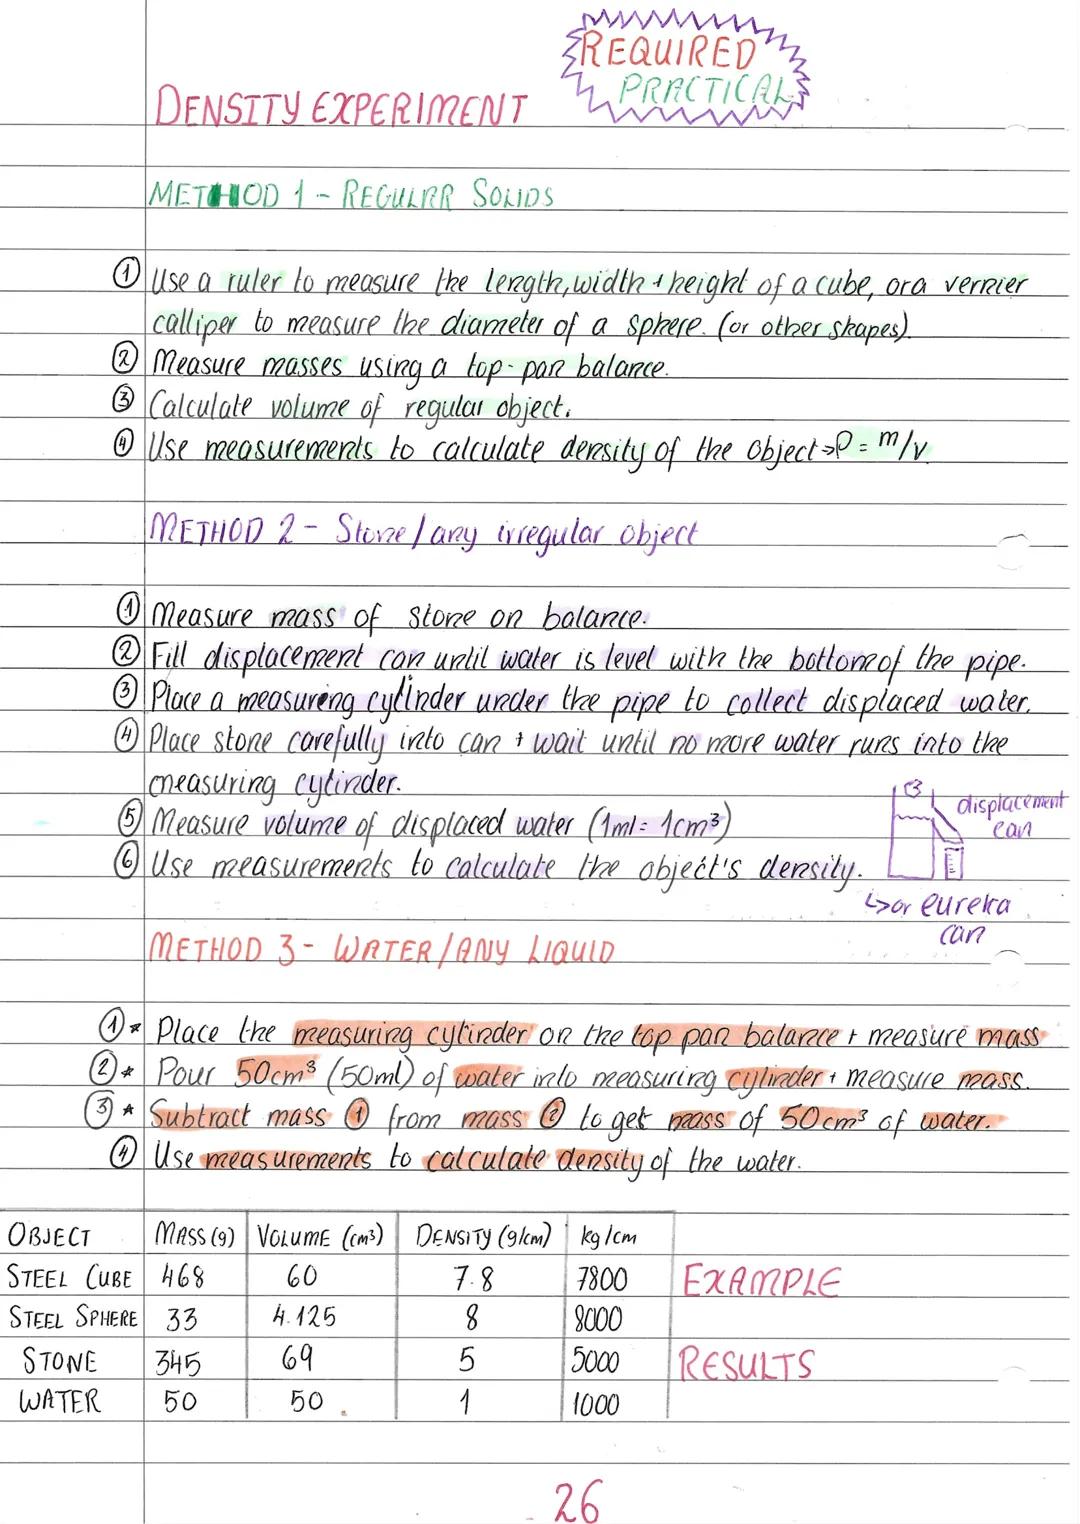 REQUIRED
PRACTICAL
DENSITY EXPERIMENT
METHOD 1 - REGULAR SOLIDS
① Use a ruler to measure the length, width + height of a cube, or a vernier
calliper to measure the diameter of a sphere. (or other shapes).
② Measure masses using a top-pan balance.
③ Calculate volume of regular object.
④ Use measurements to calculate density of the object → ρ = m/v
METHOD 2 - Stone / any irregular object
① Measure mass of stone on balance.
② Fill displacement can until water is level with the bottom of the pipe.
③ Place a measuring cylinder under the pipe to collect displaced water.
④ Place stone carefully into can + wait until no more water runs into the
measuring cylinder.
⑤ Measure volume of displaced water (1ml = 1cm³)
⑥ Use measurements to calculate the object's density.
displacement
can
↳ or eureka
can
METHOD 3 - WATER / ANY LIQUID
① * Place the measuring cylinder on the top pan balance + measure mass
② * Pour 50cm³ (50ml) of water into measuring cylinder + measure mass.
③ * Subtract mass ① from mass ② to get mass of 50cm³ of water.
④ Use measurements to calculate density of the water.
OBJECT MASS (g) VOLUME (cm³) DENSITY (g/cm) kg/cm
STEEL CUBE 468 60 7.8 7800 EXAMPLE
STEEL SPHERE 33 4.125 8 8000
STONE 345 69 5 5000 RESULTS
WATER 50 50 1 1000
26